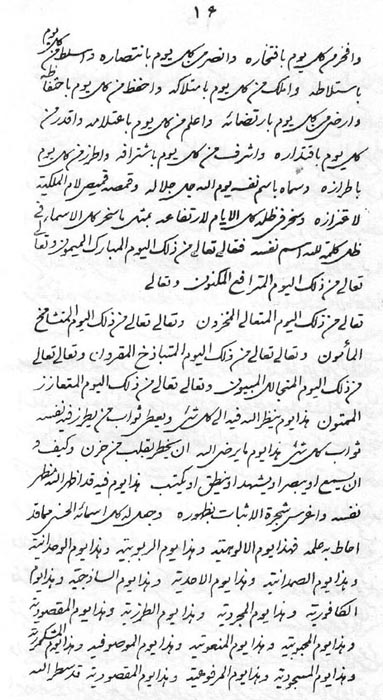 ١٦
كل يوم
وافخر من كل يوم بافتخاره وانصر من كل يوم بانتصاره واسلط من
باستلاطه واملك من كل يوم بامتلاكه واحفظ من كل يوم باحتفاظه
وارضى من كل يوم بارتضائه واعلم من كل يوم باعتلامه واقدر من
كل يوم باقتداره واشرف من كل يوم باشترافه واطرز من كل يوم
باطرازه وسماه باسم نفسه يوم الله جل جلاله وقمصه قميص الملكية
لاعتزازه وسخر في ظله كل الايام لارتفاعه بمثل ما سخر كل الاسماء في
ظل كلمة لله اسم نفسه فتعالى تعالى من ذلك اليوم المبارك الميمون وتعالى
تعالى من ذلك اليوم المترافع المكنون وتعالى
تعالى من ذلك اليوم المتعالي المخزون وتعالى تعالى من ذلك اليوم المتشامخ
المأمون وتعالى تعالى من ذلك اليوم المتباذخ وتعالى تعالى
من ذلك اليوم وتعالى تعالى من ذلك اليوم المتعازز
الممنون هذا يوم ينظر الله فيه الى كل شيء ويعطي ثواب من نفسه
ثواب كل شيء هذا يوم ما يرضى الله ان يخطر بقلب من حزن وكيف و
ان يسمع او يبصر او يشهد او ينطق او يكتب هذا يوم فيه قد اظهر الله مظهر
نفسه واغرس شجرة الاثبات بظهوره وجعل له كل اسمائه الحسنى مما قد
احاط به علمه فهذا يوم الالوهية وهذا يوم الربوبية وهذا يوم الوحدانية
وهذا يوم الصمدانية وهذا يوم الاحدية وهذا يوم الساذجية وهذا يوم
الكافورية وهذا يوم وهذا يوم الطرزية وهذا يوم المقصودية
وهذا يوم المحبوبية وهذا يوم المنعوتية وهذا يوم الموصوفية وهذا يوم
وهذا يوم وهذا يوم المرفوعية وهذا يوم المقصودية قد سطر الله